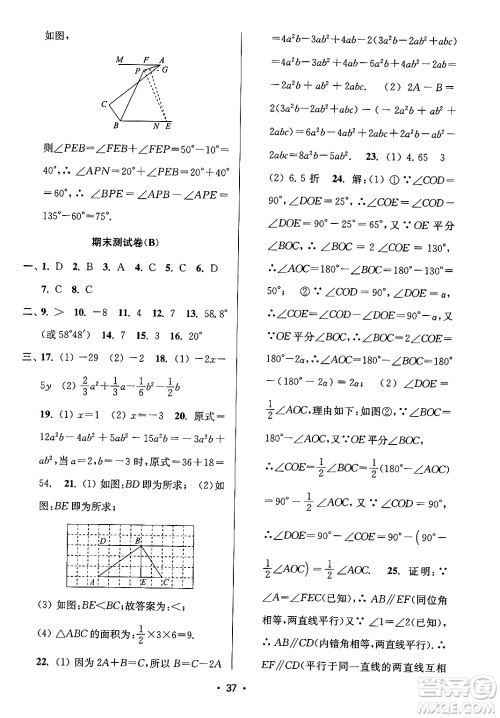 如图，
M F A
P G
C
B N E
则∠PEB=∠PEG-∠GEB=50°-10°=
40°,∴∠APN=20°+∠PEB=20°+40°
=60°,∴∠BPE=∠APE-∠APB=
135°-60°=75°.
期末测试卷(B)
一、1. D 2. B 3. A 4. C 5. C 6. D
7. C 8. D
二、9. > 10. -8
(或58°48′) 14. 7 15. 2 16. 30°
三、17. (1) -29 (2) -2 18. (1) -2x-
5y (2) 2/3a²+1/2a-1/6b²-1/2b
19. (1) x=1 (2) x=3 20. 原式=
12a²b-4ab²+12ab²-15a²b=-3a²b+8
ab²,当a=-2,b=-3时,原式=36+18=
54. 21. (1)如图:BD即为所求; (2)如
图:BE即为所求;
D B
A E C
(3)如图:BE<BC;故答案为:<;
(4)△ABC的面积=1/2×3×6=9.
22. (1)因为2A+B=C,所以B=C-2A
=4a²b-3ab²+4abc-2(3a²b-2ab²+abc)
=4a²b-3ab²+4abc-6a²b+4ab²-2abc
=-2a²b+ab²+2abc. (2) 2A-B=
2(3a²b-2ab²+abc)-(-2a²b+ab²+
2abc)=6a²b-4ab²+2abc+2a²b-ab²-
2abc=8a²b-5ab². 23. (1) 4.65 3
(2) 6.5折 24. 解:(1)∵∠COD=
90°,∠DOE=25°,∴∠COE=∠COD-
∠DOE=90°-25°=65°,又∵OE平分
∠BOC,∴∠BOC=2∠COE=130°,
∴∠AOC=180°-∠BOC=180°-130°
=50°; (2)∵∠COD=90°,∠DOE=α,
∴∠COE=∠COD-∠DOE=90°-α,
又∵OE平分∠BOC,∴∠BOC=
2∠COE=180°-2α,∴∠AOC=180°-
∠BOC=180°-(180°-2α)=2α;
1/2∠AOC,理由如下:如图②,∵∠BOC=
180°-∠AOC,又∵OE平分∠BOC,
∴∠COE=1/2∠BOC=1/2(180°-∠AOC)
=90°-1/2∠AOC,又∵∠COD=90°,
∴∠DOE=90°-∠COE=90°-(90°-
1/2∠AOC)=1/2∠AOC. 25. 证明:∵
∠A=∠F(已知),∴AB∥EF(内错角相
等,两直线平行),∵∠1=∠2(已知),∴
AB∥CD(内错角相等,两直线平行),∴
EF∥CD(平行于同一直线的两直线互相
• 37 •